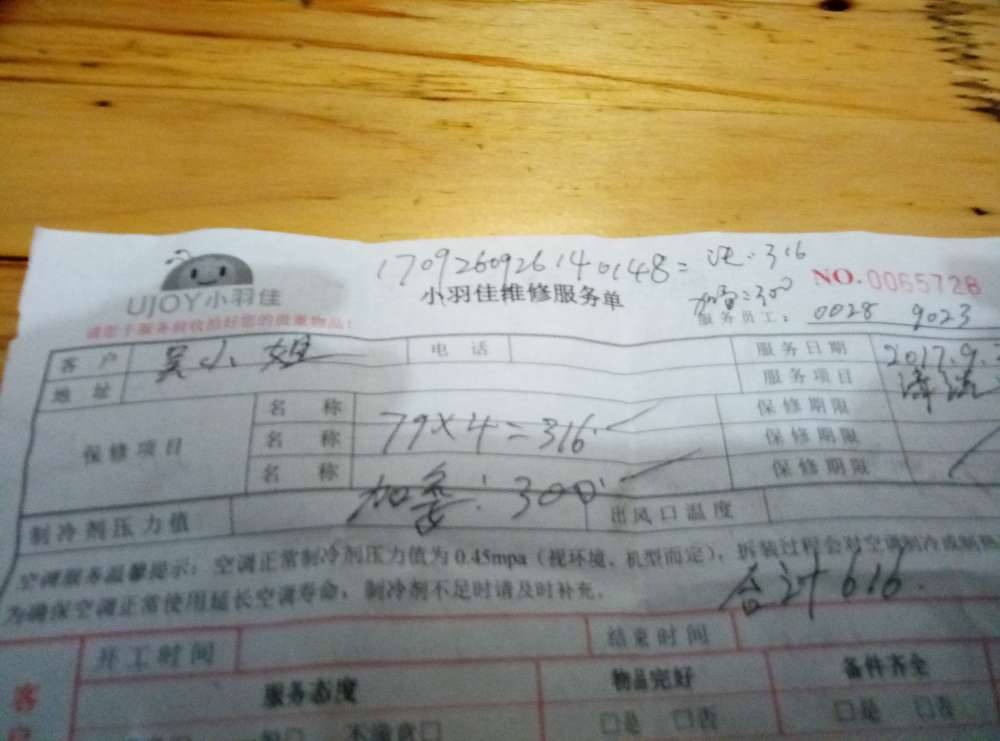 1709260926140148= 洗:316
UJOY小羽佳 小羽佳维修服务单 NO.0065728
加雪=300
请您于服务前收拾好您的贵重物品! 服务员工: 0028 9023
客户 吴小姐 电话 服务日期 2017.9.
地址 服务项目 清洗
保修项目 名称 79×4=316 保修期限
名称 保修期限
名称 加雪:300 保修期限
制冷剂压力值 出风口温度
空调服务温馨提示:空调正常制冷剂压力值为0.45mpa(视环境、机型而定),拆装过程会对空调制冷或制热
为确保空调正常使用延长空调寿命,制冷剂不足时请及时补充。
合计616.
开工时间 结束时间
客 服务态度 物品完好 备件齐全
不满意□ □是 □否 □是 □否